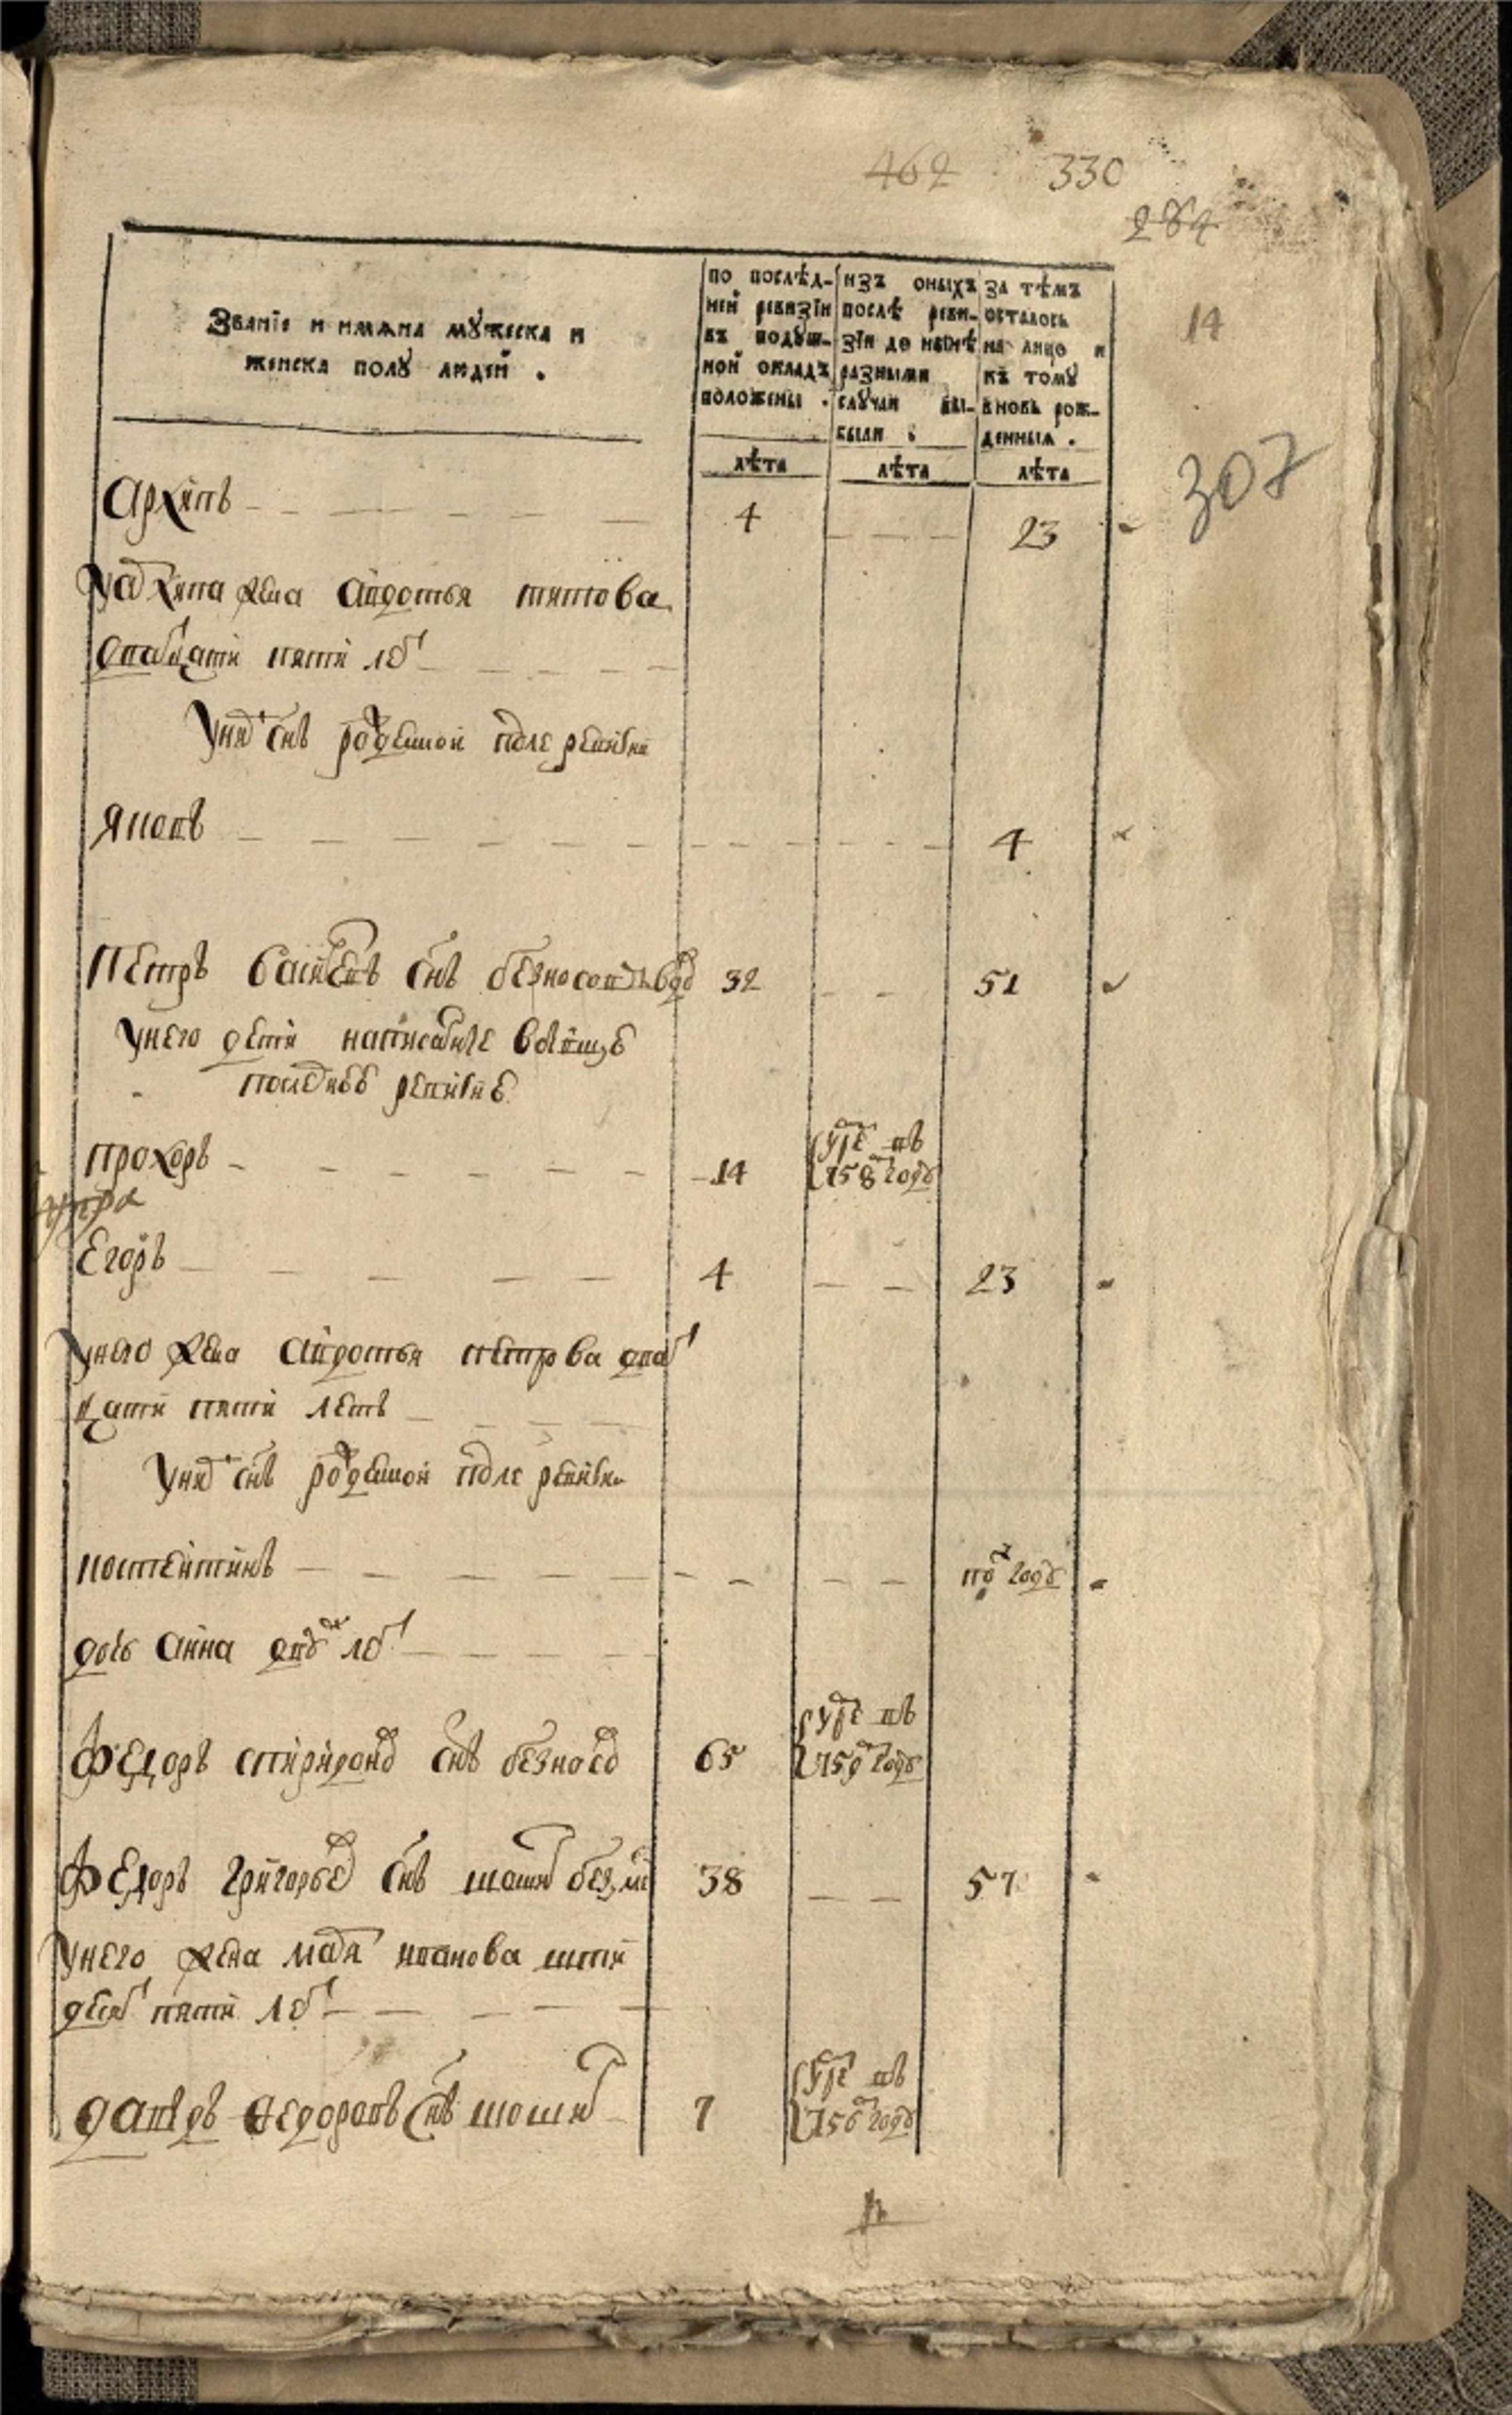 462 330
284
14
307
Званіе и имѧна мужеска и
женска полу людей .
по послѣд-
ней ревизіи
въ подуш-
ной окладъ
положены .
изъ оныхъ
послѣ реви-
зіи до нынѣ
разными
случаи вы-
были :
за тѣмъ
осталось
на лицо и
къ тому
вновь рож-
денныя .
лѣта лѣта лѣта
Архипъ 4 23
У Архипа жена Авдотья титова
дватцати пяти летъ
У них снъ рожденной после ревизии
Яковъ 4
Петръ Васильевъ снъ 32 51
У него дети написанные въ
последнеѣ ревизиѣ
Прохоръ 14 умре въ
758м году
Егоръ 4 23
У него жена Авдотья петрова дват
цати пяти летъ
У них снъ рожденной после ревизии
костентинъ полгоду
дочь Анна дву летъ
Федоръ спиридонов снъ безносов 65 умре въ
759м году
Федоръ Григорьев снъ 38 57
У него жена марья иванова шти
десят пяти летъ
давыдъ Федоровъ снъ 7 умре въ
756м году